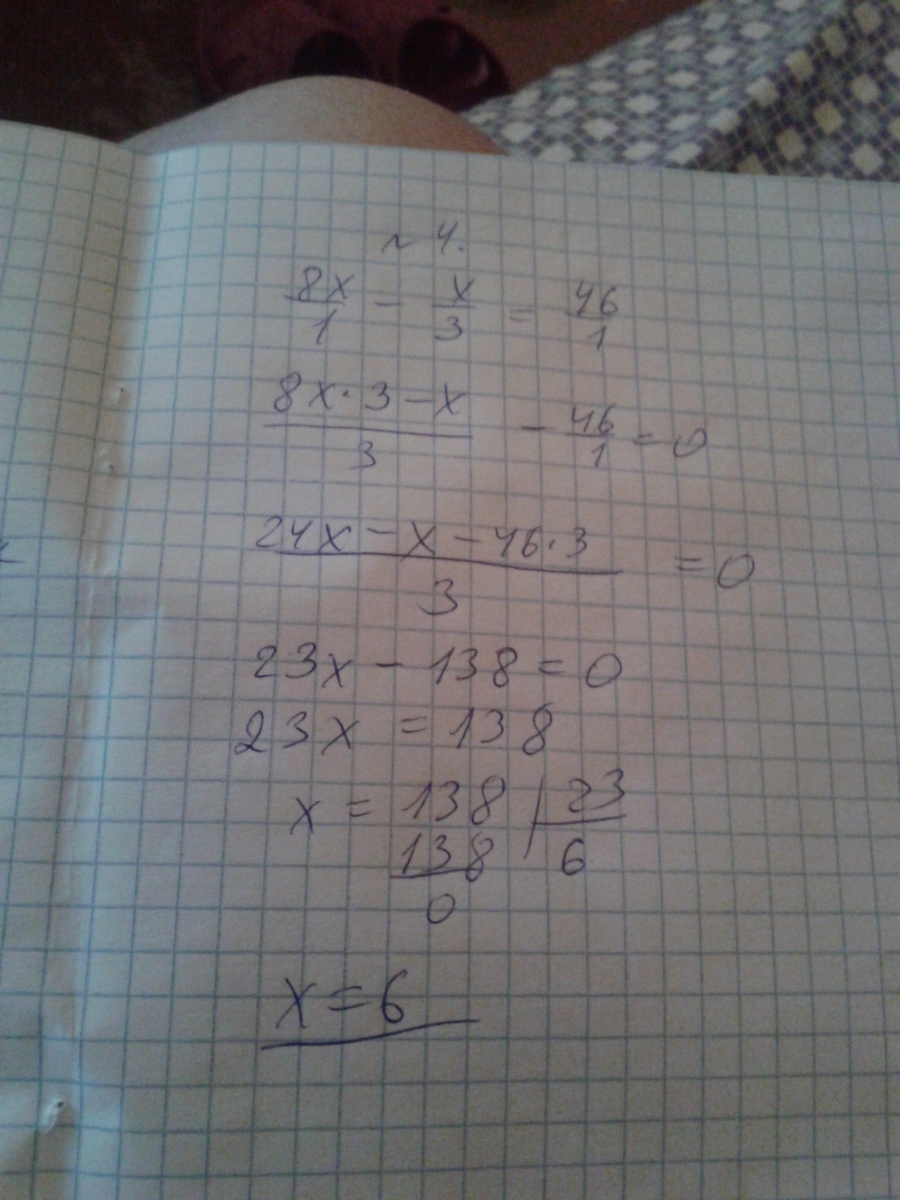 ~ 4.
8x/1 - x/3 = 46/1
8x·3-x/3 - 46/1 = 0
24x - x - 46·3/3 = 0
23x - 138 = 0
23x = 138
x = 138 | 23
138 6
0
x = 6